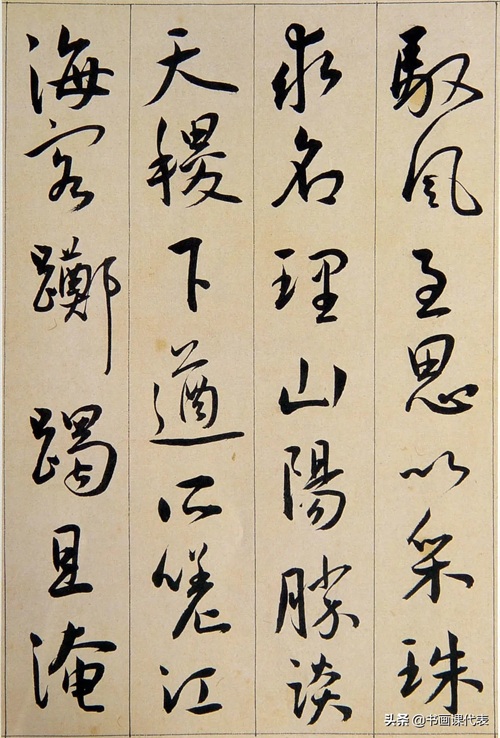 馭風至思以采珠
求名理山陽勝談
天稷下遒所嗟江
海客躑躅且淹
头条 @书画课代表